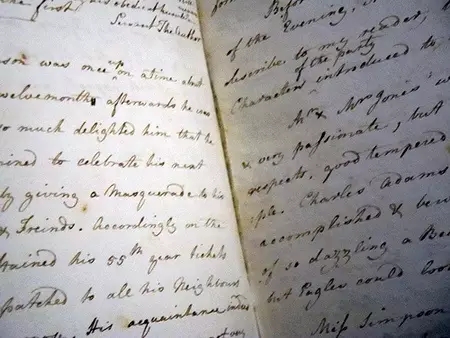 the first, his obedient humble
Servant The Author
son was once upon a time about
twelvemonths afterwards he was
so much delighted him that he
mined to celebrate his next
by giving a Masquerade to his
& Freinds. Accordingly on the
ttained his 55th year tickets
spatched to all his Neighbours
His acquaintance indeed
Before
of the Evening,
describe to my reader,
of the party
Characters introduced to
Mr & Mrs Jones w
& very passionate, but
respects, good tempered
ple. Charles Adams
accomplished & bew
of so dazzling a Bea
but Eagles could loo
Miss Simpson